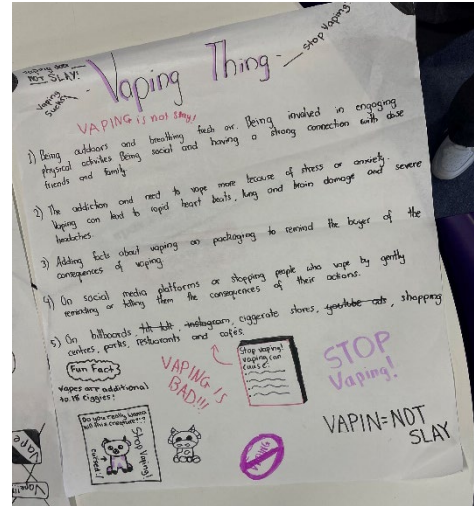 Vaping does
NOT SLAY!
Vaping Thing
Stop Vaping
Vaping
Sucks
VAPING is not slay!
1) Being outdoors and breathing fresh air. Being involved in engaging
physical activities Being social and having a strong connection with close
friends and family.
2) The addiction and need to vape more because of stress or anxiety.
Vaping can lead to rapid heart beats, lung and brain damage and severe
headaches.
3) Adding facts about vaping on packaging to remind the buyer of the
consequences of vaping.
4) On social media platforms or stopping people who vape by gently
reminding or telling them the consequences of their actions.
5) On billboards, tik tok, instagram, ciggerate stores, youtube ads, shopping
centres, parks, restaurants and cafés.
Fun Fact
vapes are additional
to 18 ciggies!
VAPING IS
BAD!!!
Stop vaping!
vaping can
cause:
STOP
Vaping!
Do you really wanna
kill this creature?!?
Stop Vaping!
VAPIN=NOT
SLAY